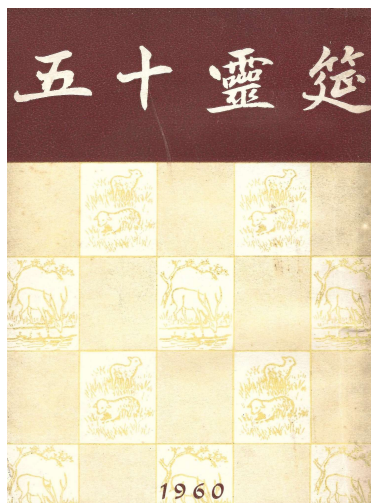 五十靈筵
1960